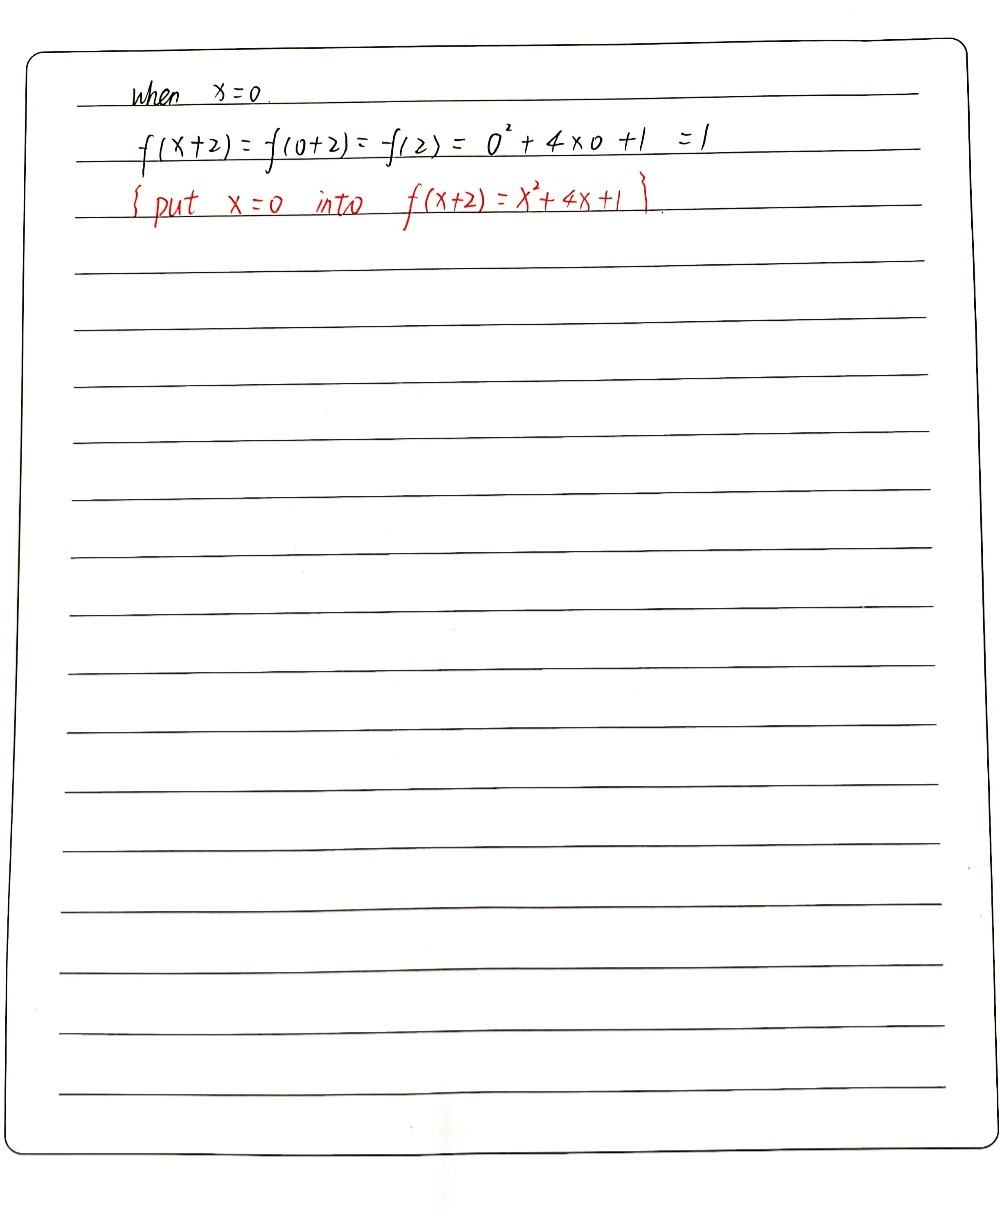 when x=0.
f(x+2)=f(0+2)=f(2)= 0²+4×0+1 =1
{put x=0 into f(x+2)=x²+4x+1}.